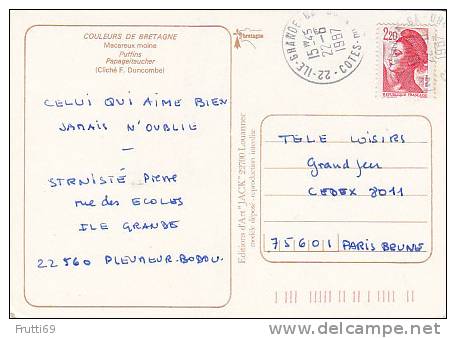 COULEURS DE BRETAGNE
Macareux moine
Puffins
Papageitaucher
(Cliché F. Duncombe)
bretagne
CELUI QUI AIME BIEN
JAMAIS N'OUBLIE
—
STRNISTÉ Pierre
rue des ECOLES
ILE GRANDE
22560 PLEUMEUR-BODOU.
Editions d'Art "JACK" 22700 Louannec
modèle déposé - reproduction interdite
22-ILE-GRANDE
15H45
22-6
1987
COTES
2,20
REPUBLIQUE FRANCAISE
TELE LOISIRS
Grand Jeu
CEDEX 3011
75601 PARIS BRUNE
Frutti69
delcampe.net